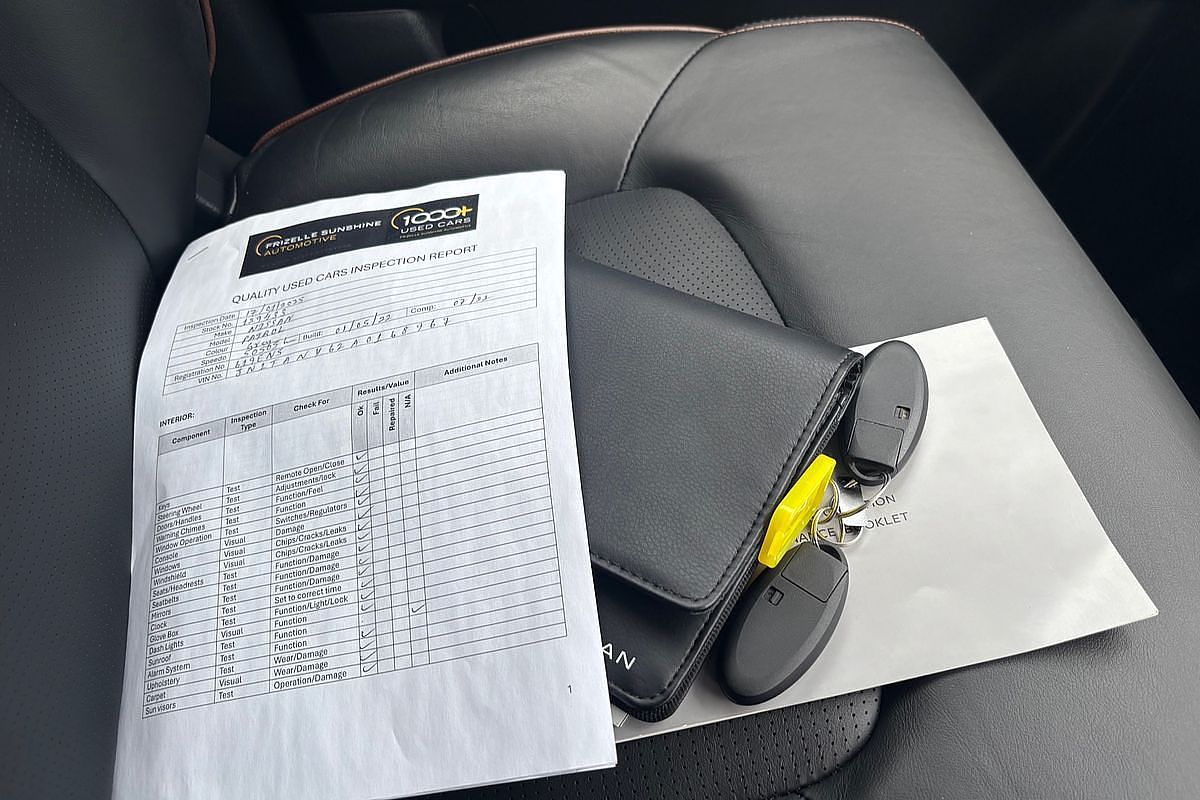 FRIZELLE SUNSHINE
AUTOMOTIVE
1000+
USED CARS
FRIZELLE SUNSHINE AUTOMOTIVE
QUALITY USED CARS INSPECTION REPORT
Inspection Date
Stock No.
Make NISSAN
Model PATROL
Colour Build: 01/05/22 Comp:
Speedo
Registration No
VIN No.
INTERIOR:
Component Inspection Type Check For Results/Value Additional Notes
Ok Fail Repaired N/A
Keys Test Remote Open/Close
Steering Wheel Test Adjustments/lock
Doors/Handles Test Function/Feel
Warning Chimes Test Function
Window Operation Test Switches/Regulators
Console Visual Damage
Windows Visual Chips/Cracks/Leaks
Windshield Visual Chips/Cracks/Leaks
Seats/Headrests Test Function/Damage
Seatbelts Test Function/Damage
Mirrors Test Function/Damage
Clock Test Set to correct time
Glove Box Test Function/Light/Lock
Dash Lights Visual Function
Sunroof Test Function
Alarm System Test Function
Upholstery Visual Wear/Damage
Carpet Visual Wear/Damage
Sun visors Test Operation/Damage
1
AN
ION
ANCE OKLET